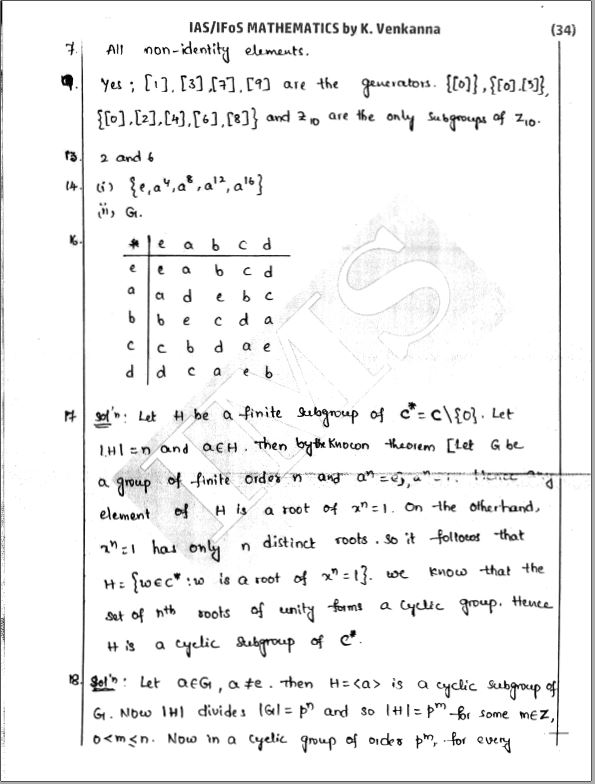 IAS/IFoS MATHEMATICS by K. Venkanna (34)
7. All non-identity elements.
9. Yes ; [1], [3], [7], [9] are the generators. {[0]}, {[0],[5]},
{[0],[2],[4],[6],[8]} and Z₁₀ are the only subgroups of Z₁₀.
13. 2 and 6
14. (i) {e, a⁴, a⁸, a¹², a¹⁶}
(ii) G.
16. * e a b c d
e e a b c d
a a d e b c
b b e c d a
c c b d a e
d d c a e b
IMS
17 Sol'n: Let H be a finite subgroup of C* = C\{0}. Let
|H| = n and a∈H. Then by the known theorem [Let G be
a group of finite order n and aⁿ = e], aⁿ = 1. Hence any
element of H is a root of xⁿ = 1. On the otherhand,
xⁿ = 1 has only n distinct roots. So it follows that
H = {w∈C* : w is a root of xⁿ = 1}. we know that the
set of nth roots of unity forms a cyclic group. Hence
H is a cyclic subgroup of C*.
18. Sol'n: Let a∈G, a≠e. Then H = <a> is a cyclic subgroup of
G. Now |H| divides |G| = pⁿ and so |H| = pᵐ for some m∈Z,
0<m≤n. Now in a cyclic group of order pᵐ, for every